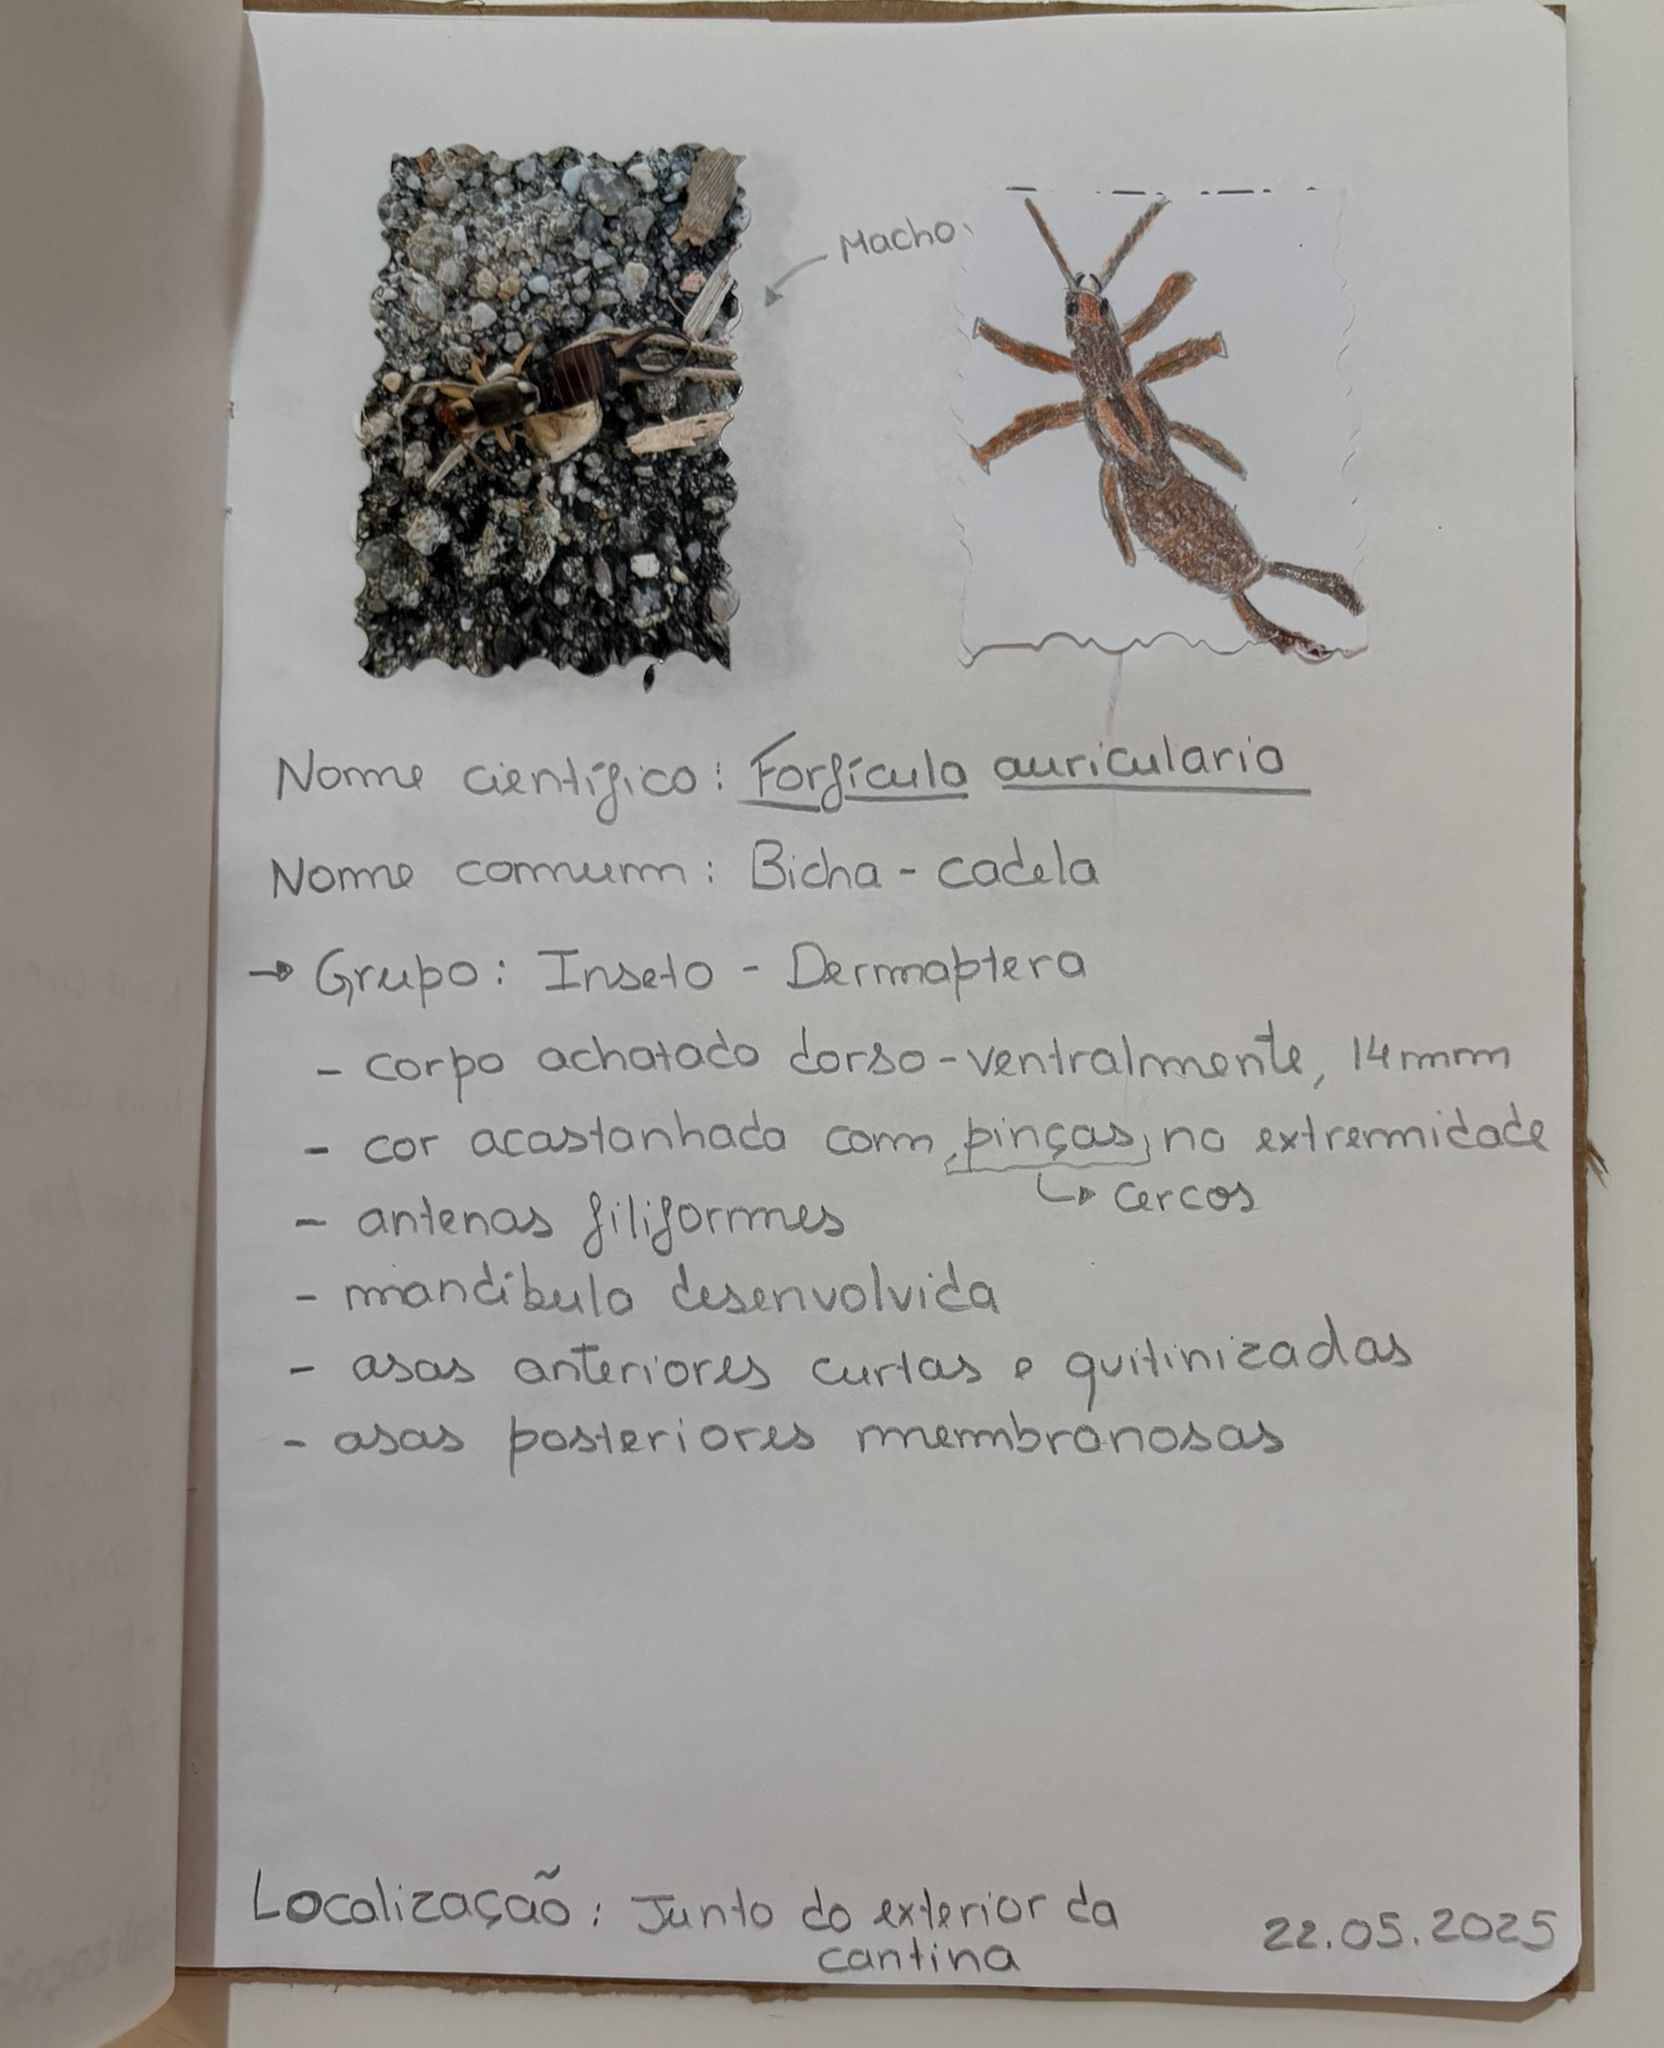 Macho
Nome científico: Forfícula auricularia
Nome comum: Bicha-cadela
→ Grupo: Inseto - Dermaptera
- corpo achatado dorso-ventralmente, 14mm
- cor acastanhada com pinças na extremidade
↳ cercos
- antenas filiformes
- mandíbula desenvolvida
- asas anteriores curtas e quitinizadas
- asas posteriores membranosas
Localização: Junto do exterior da
cantina
22.05.2025